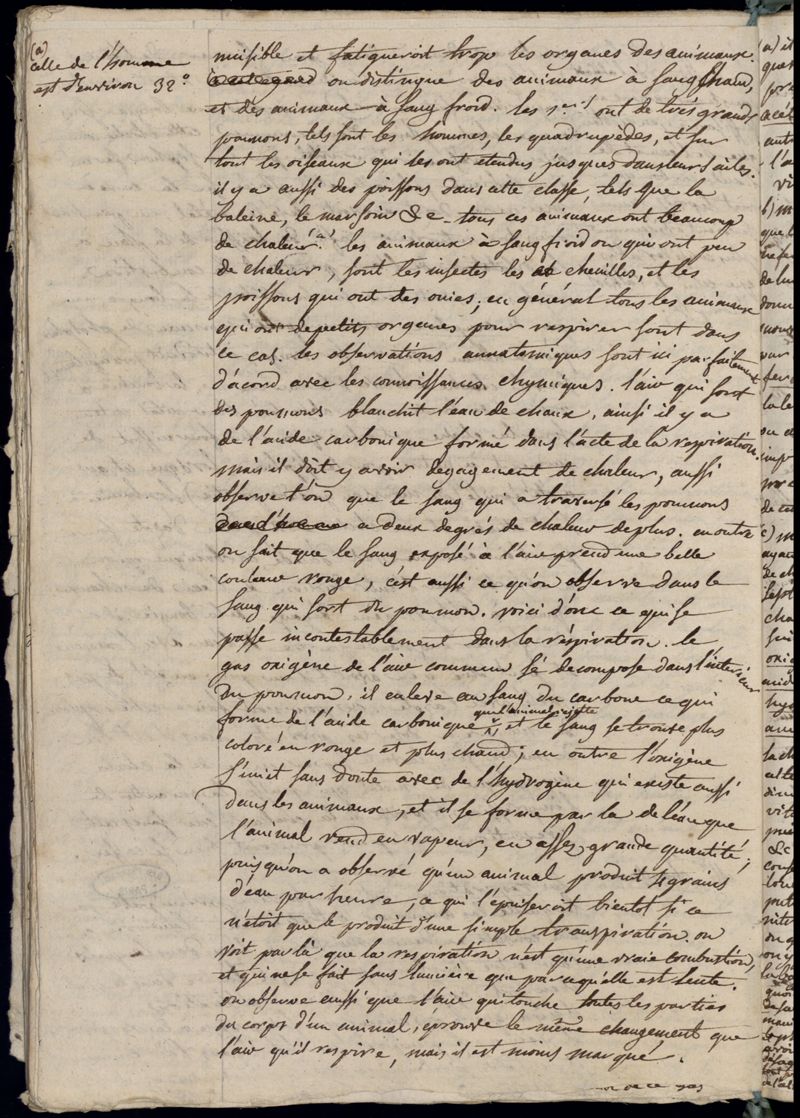 (a)
celle de l'homme
est d'environ 32°
nuisible et fatigueroit trop les organes des animaux.
on distingue des animaux à sang chaud,
et des animaux à sang froid. les 1ers ont de très grands
poumons, tels sont les hommes, les quadrupèdes, et sur
tout les oiseaux qui les ont etendus jusques dans leurs ailes.
il y a aussi des poissons dans cette classe, tels que la
baleine, le marsoin &c. tous ces animaux ont beaucoup
de chaleur (a). les animaux à sang froid ou qui ont peu
de chaleur, sont les insectes les chenilles, et les
poissons qui ont des ouies; en général tous les animaux
qui ont de petits organes pour respirer sont dans
ce cas. les observations annatomiques sont ici parfaitement
d'acord avec les connoissances chymiques. l'air qui sort
des poumons blanchit l'eau de chaux, ainsi il y a
de l'acide carbonique formé dans l'acte de la respiration.
mais il doit y avoir degagement de chaleur, aussi
observe t'on que le sang qui a traversé les poumons
a deux degrés de chaleur de plus. en outre
on sait que le sang exposé à l'air prend une belle
couleur rouge, c'est aussi ce qu'on observe dans le
sang qui sort du poumon. voici donc ce qui se
passe incontestablement dans la réspiration. le
gas oxigène de l'air commun se decompose dans l'intérieur
du poumon, il enleve au sang du carbone ce qui
forme de l'acide carbonique que l'animal rejette et le sang se trouve plus
coloré en rouge et plus chaud; en outre l'oxigène
s'unit sans doute avec de l'hydrogène qui existe aussi
dans les animaux, et il se forme par la de l'eau que
l'animal rend en vapeur, en assez grande quantité;
puisqu'on a observé qu'un animal produit 4 grains
d'eau par heure, ce qui l'épuiseroit bientot si ce
n'étoit que le produit d'une simple transpiration. on
voit par là que la respiration n'est qu'une vraie combustion,
et qui ne se fait sans lumière que parce qu'elle est lente.
on observe aussi que l'air qui touche toutes les parties
du corps d'un animal, éprouve le même changement que
l'air qu'il respire, mais il est moins marqué.